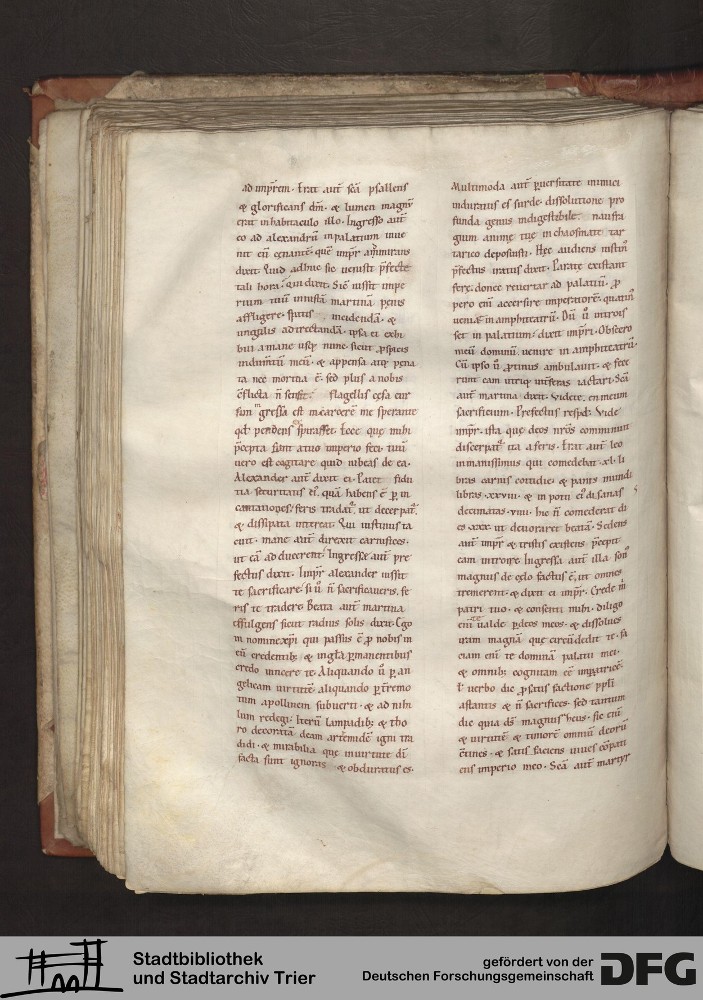 ad impr̄em. Erat aut̄ sc̄a psallens
& glorificans dm̄. & lumen magnū
erat in habitaculo illo. Ingresso aut̄
eo ad alexandrū in palatium inue
nit eū cenantē. quē impr̄ ammirans
dixit. Quid adhuc sic uenisti p̄fecte
tali hora. Qui dixit. Sic iussit impe
rium tuū iniustā martinā penis
affligere.
ungulis ad irectandā. ipsa ei exhi
bui a mane usq; nunc. sicut p̄spicis
indumtū meū. & appensa atq; pena
ta nec mortua ē. sed plus a nobis
c̄flicta n̄ sensit. flagellis cesa eur
sum gressa est in carcerē me sperante
qd̄ pendens spirasset. Ecce quę mihi
p̄cepta sunt a tuo imperio feci. tuū
uero est cogitare quid iubeas de ea.
Alexander aut̄ dixit ei. Patet fidu
tia securitatis ei. quā habens ē p̄ in
cantationes. feris tradat̄. ut decerpat̄.
& dissipata intereat. Qui iustinus ta
cuit. mane aut̄ direxit carnifices.
ut eā adducerent. Ingressę aut̄ pre
fectus dixit. Impr̄ alexander iussit
te sacrificare. si ū n̄ sacrificaueris. fe
ris te tradere. Beata aut̄ martina
effulgens sicut radius solis dixit. Ego
in nomine xp̄i qui passus ē p̄ nobis in
eū credentib; & in gl̄a p̄manentibus
credo uincere te. Aliquando ū p̄ an
gelicam uirtutē aliquando p̄ tremo
rem apollinem subuerti. & ad nihi
lum redegi. Iterū lampadib; & tho
ro decoratā deam artemidē igni tra
didi. & mirabilia que in uirtute dī
facta sunt ignoras & obduratus es.
Multimoda aut̄ p̄uersitate inimici
induratus es surde. dissolutione pro
funda genus indigestibile. naufra
gium animę tuę in chaosmate tar
tareo deposuisti. Hęc audiens iustin̄
p̄fectus iratus dixit. Paratę existant
ferę. donec reuertar ad palatiū. p̄
pero enī accersire imperatorē. quatin̄
ueniat in amphiteatrū. Dū ū introis
set in palatium. dixit impr̄i. Obsecro
meū dominū. uenire in amphiteatrū.
Cū ipso ū p̄tinus ambulauit. & fece
runt eam utriq; ut feras iactari. Sc̄a
aut̄ martina dixit. Videte. en meum
sacrificium. Prefectus respd̄. Vide
impr̄. ista que deos nr̄os comminuit
discerpat̄ ita a feris. Erat aut̄ leo
inmanissimus qui comedebat .xl. li
bras carnis cottidie. & panis mundi
libras .xxviii. & in potu ei
decimatas .viii. hic n̄ comederat di
es .xxx. ut deuoraret beatā. Sedens
aut̄ impr̄ & tristis existens p̄cepit
eam introire. Ingressa aut̄ illa. son̄
magnus de cęlo factus ē, ut omnes
tremerent. & dixit ei impr̄. Crede m̄
patri tuo. & consenti mihi. diligo
enī te ualde. p̄ deos meos. & dissolues
iram magnā que circūdedit te. fa
ciam enī te dominā palatii mei.
& omnib; cognitam ee imperatricē.
l̄ uerbo die p̄ solius factione pp̄li
astantis & n̄ sacrifices. sed tantum
dic quia ds̄ magnus heus. sic enī
& uirtutē & timorē omniū deorū
c̄tines. & satis faciens uiues cōpati
ens imperio meo. Sc̄a aut̄ martyr
Stadtbibliothek
und Stadtarchiv Trier
gefördert von der
Deutschen Forschungsgemeinschaft
DFG